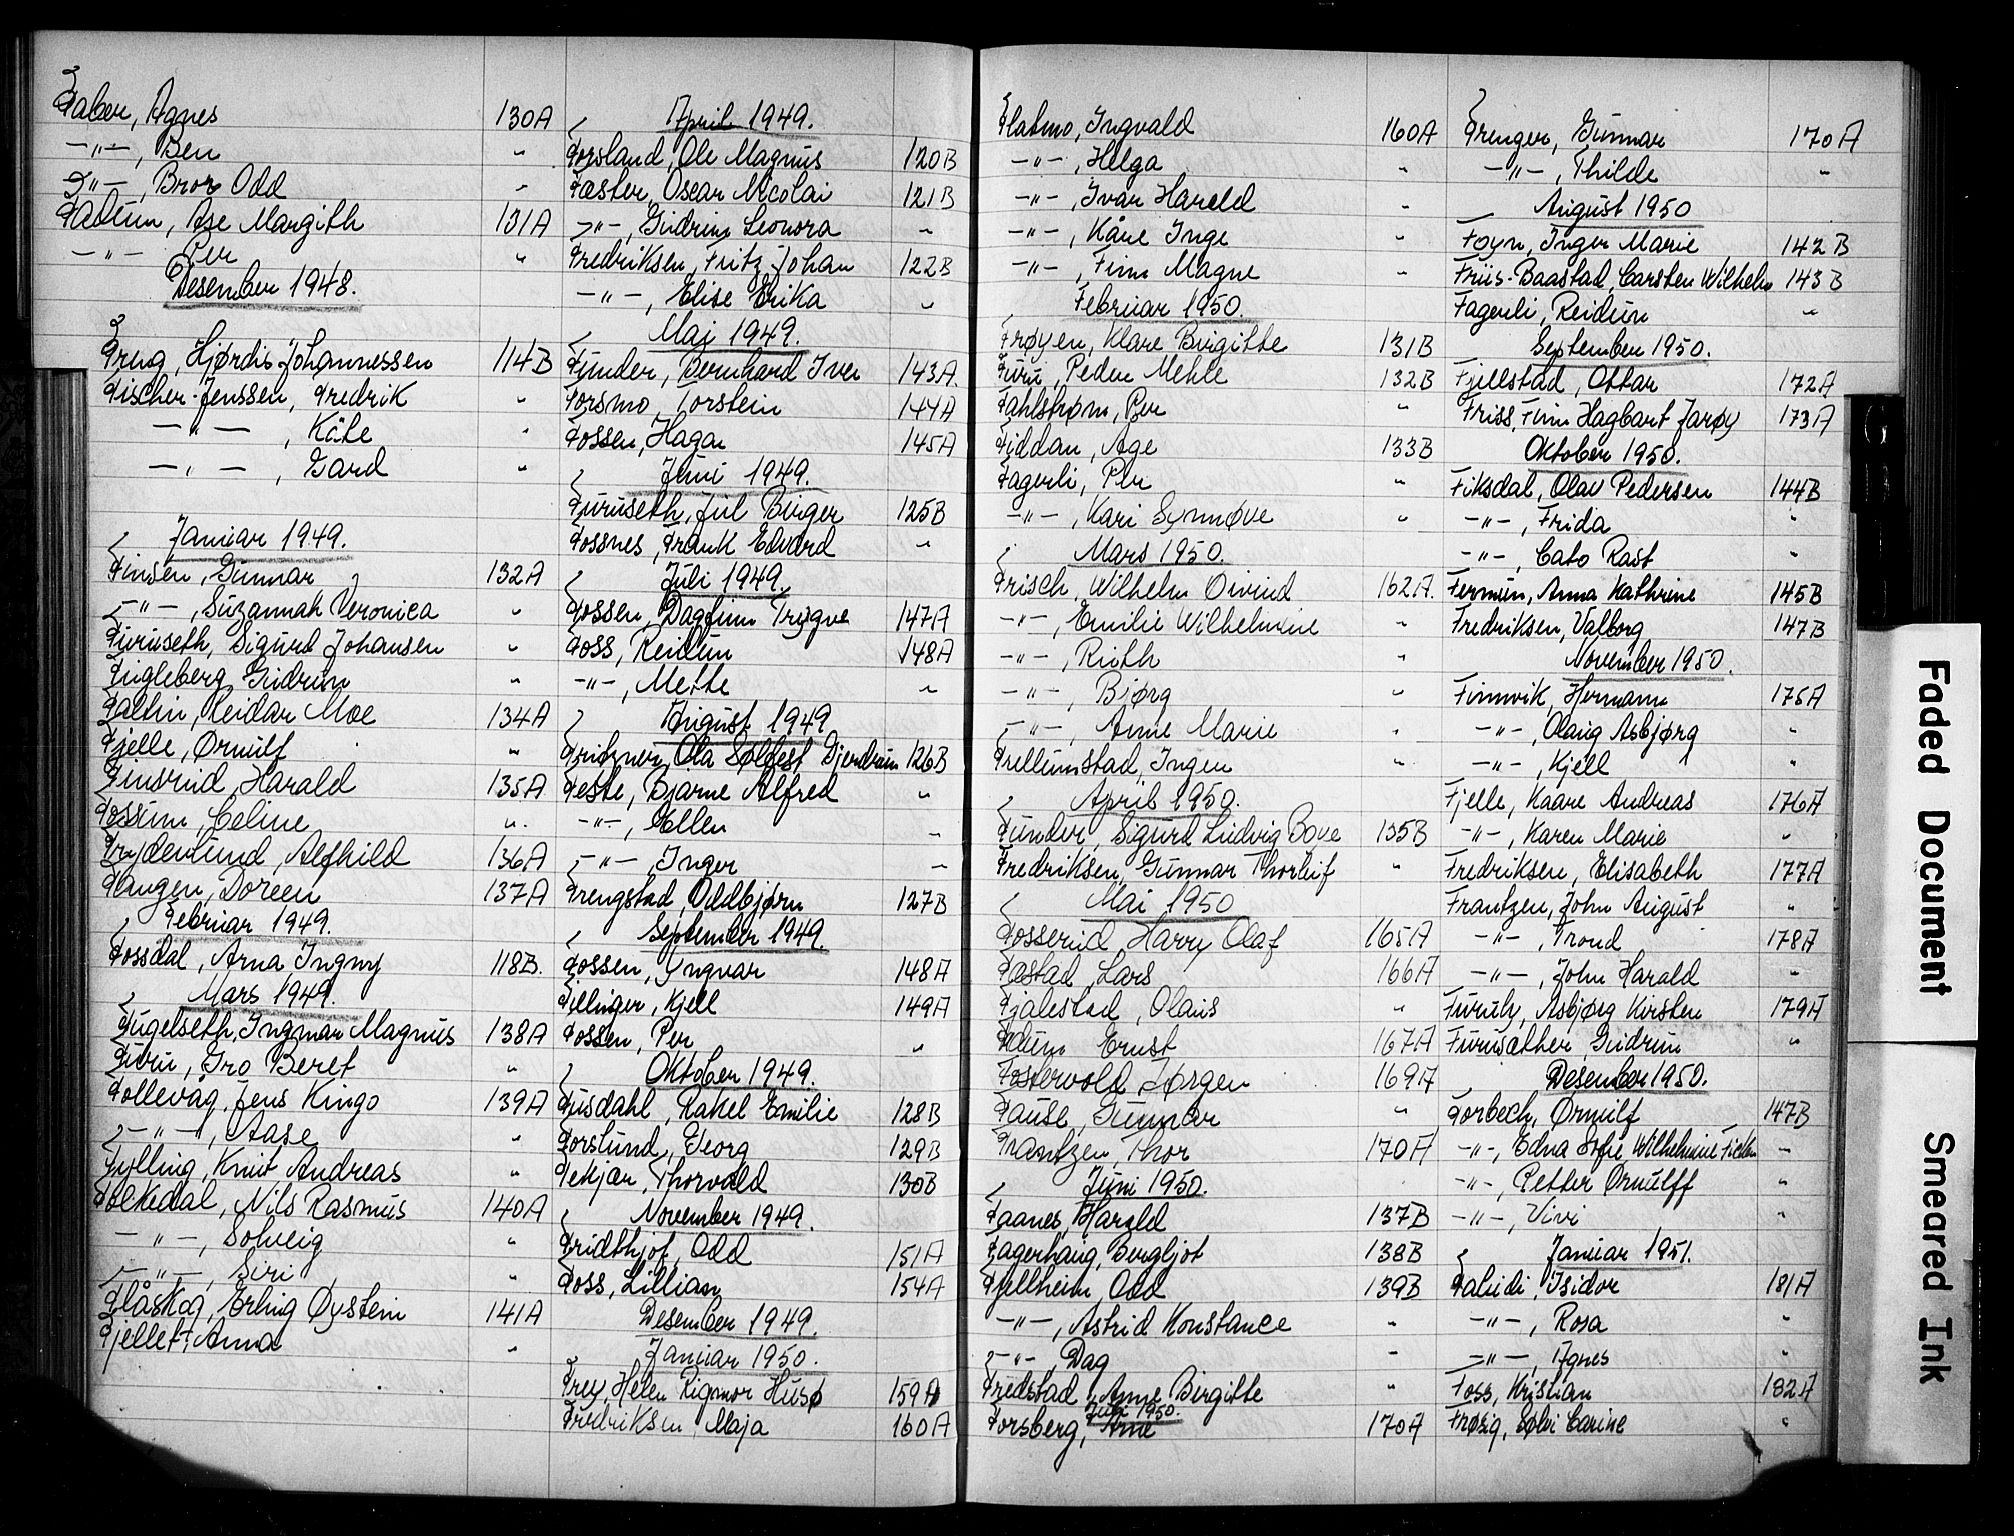 Faber, Agnes 130A
-"-, Ben "
-"-, Bror Odd "
Fadum, Åse Margith 131A
-"- Per "
Desember 1948.
Freng, Hjørdis Johannessen 114B
Fischer-Jenssen, Fredrik "
-"-, Käte "
-"-, Gard "
Januar 1949.
Finsen, Gunnar 132A
-"-, Suzannah Veronica "
Furuseth, Sigurd Johansen "
Fugleberg, Gudrun "
Faltin, Reidar Moe 134A
Fjelle, Ørnulf "
Finsrud, Harald 135A
Fossum, Celine "
Frydenlund, Alfhild 136A
Fangen, Doreen 137A
Februar 1949.
Fossdal, Arna Ingny 118B.
Mars 1949.
Fugelseth, Ingmar Magnus 138A
Furu, Gro Beret "
Follevåg, Jens Kingo 139A
-"-, Aase "
Fylling, Knut Andreas "
Folkedal, Nils Rasmus 140A
-"-, Solveig "
-"-, Siri "
Flåskog, Erling Øystein 141A
Fjellet, Anna "
April 1949.
Forsland, Ole Magnus 120B
Fæster, Oscar Nicolai 121B
-"-, Gudrun Leonora "
Fredriksen, Fritz Johan 122B
-"-, Elise Erika "
Mai 1949.
Funder, Bernhard Iver 143A.
Forsmo, Torstein 144A
Fossen, Hagar 145A
Juni 1949.
Furuseth, Jul Birger 125B
Fossnes, Frank Edvard "
Juli 1949.
Fossen, Dagfinn Trygve 147A
Foss, Reidun 148A
-"-, Mette "
August 1949
Fritzner, Ola Sølfest Gjerdrum 126B
Feste, Bjarne Alfred "
-"-, Ellen "
-"-, Inger "
Frengstad, Oddbjørn 127B
September 1949.
Fossen, Yngvar 148A
Fillinger, Kjell 149A
Fossen, Per "
Oktober 1949.
Fusdahl, Rakel Emilie 128B
Forslund, Georg 129B
Fekjær, Thorvald 130B
November 1949.
Fridthjof, Odd 151A
Foss, Lillian 154A
Desember 1949.
Januar 1950.
Frey, Helen Rigmor Husø 159A
Fredriksen, Maja 160A
Flatmo, Ingvald 160A
-"-, Helga "
-"-, Ivar Harald "
-"-, Kåre Inge "
-"-, Finn Magne "
Februar 1950.
Frøyen, Klare Birgitte 131B
Furu, Peder Mehle 132B
Fahlstrøm, Per "
Fiddan, Åge 133B
Fagerli, Per "
-"-, Kari Synnøve "
Mars 1950.
Frisch, Wilhelm Øivind 162A.
-"-, Emilie Wilhelmine "
-"-, Ruth "
-"-, Bjørg "
-"-, Anne Marie "
Frellumstad, Inger "
April 1950.
Funder, Sigurd Ludvig Bove 135B
Fredriksen, Gunnar Thorleif "
Mai 1950
Fosserud, Harry Olaf 165A
Fastad, Lars 166A
Fjalestad, Olaus "
Fadum Ernst 167A
Fostervold Jørgen 169A
Fause, Gunnar "
Frantzen, Thor 170A
Juni 1950.
Faanes, Harald 137B
Fagerhaug, Bergljot 138B
Fjellheim, Odd 139B
-"-, Astrid Konstance "
-"-, Dag "
Fredstad, Anne Birgitte "
Juli 1950.
Forsberg, Arne 170A
Frenger, Gunnar 170A
-"-, Thilde "
August 1950
Føyn, Inger Marie 142B
Friis-Baastad, Carsten Wilhelm 143B
Fagerli, Reidun "
September 1950.
Fjellstad, Ottar 172A
Friss, Finn Hagbart Jarøy 173A
Oktober 1950.
Fiksdal, Olav Pedersen 144B
-"-, Frida "
-"-, Cato Rast "
Fermun, Anna Kathrine 145B
Fredriksen, Valborg 147B
November 1950.
Finnvik, Hermann 175A
-"-, Olaug Asbjørg "
-"-, Kjell "
Fjelle, Kaare Andreas 176A
-"-, Karen Marie "
Fredriksen, Elisabeth 177A
Frantzen, John August "
-"-, Trond 178A
-"-, John Harald "
Furuly, Asbjørg Kirsten 179A
Furusæther, Gudrun "
Desember 1950.
Forbech, Ørnulf 147B
-"-, Edna Sofie Wilhelmine "
-"-, Petter Ørnulff "
-"-, Vivi "
Januar 1951.
Faludi, Isidor 181A
-"-, Rosa "
-"-, Agnes "
Foss, Kristian 182A
Frøzig, Sølvi Carine "
Faded Document
Smeared Ink